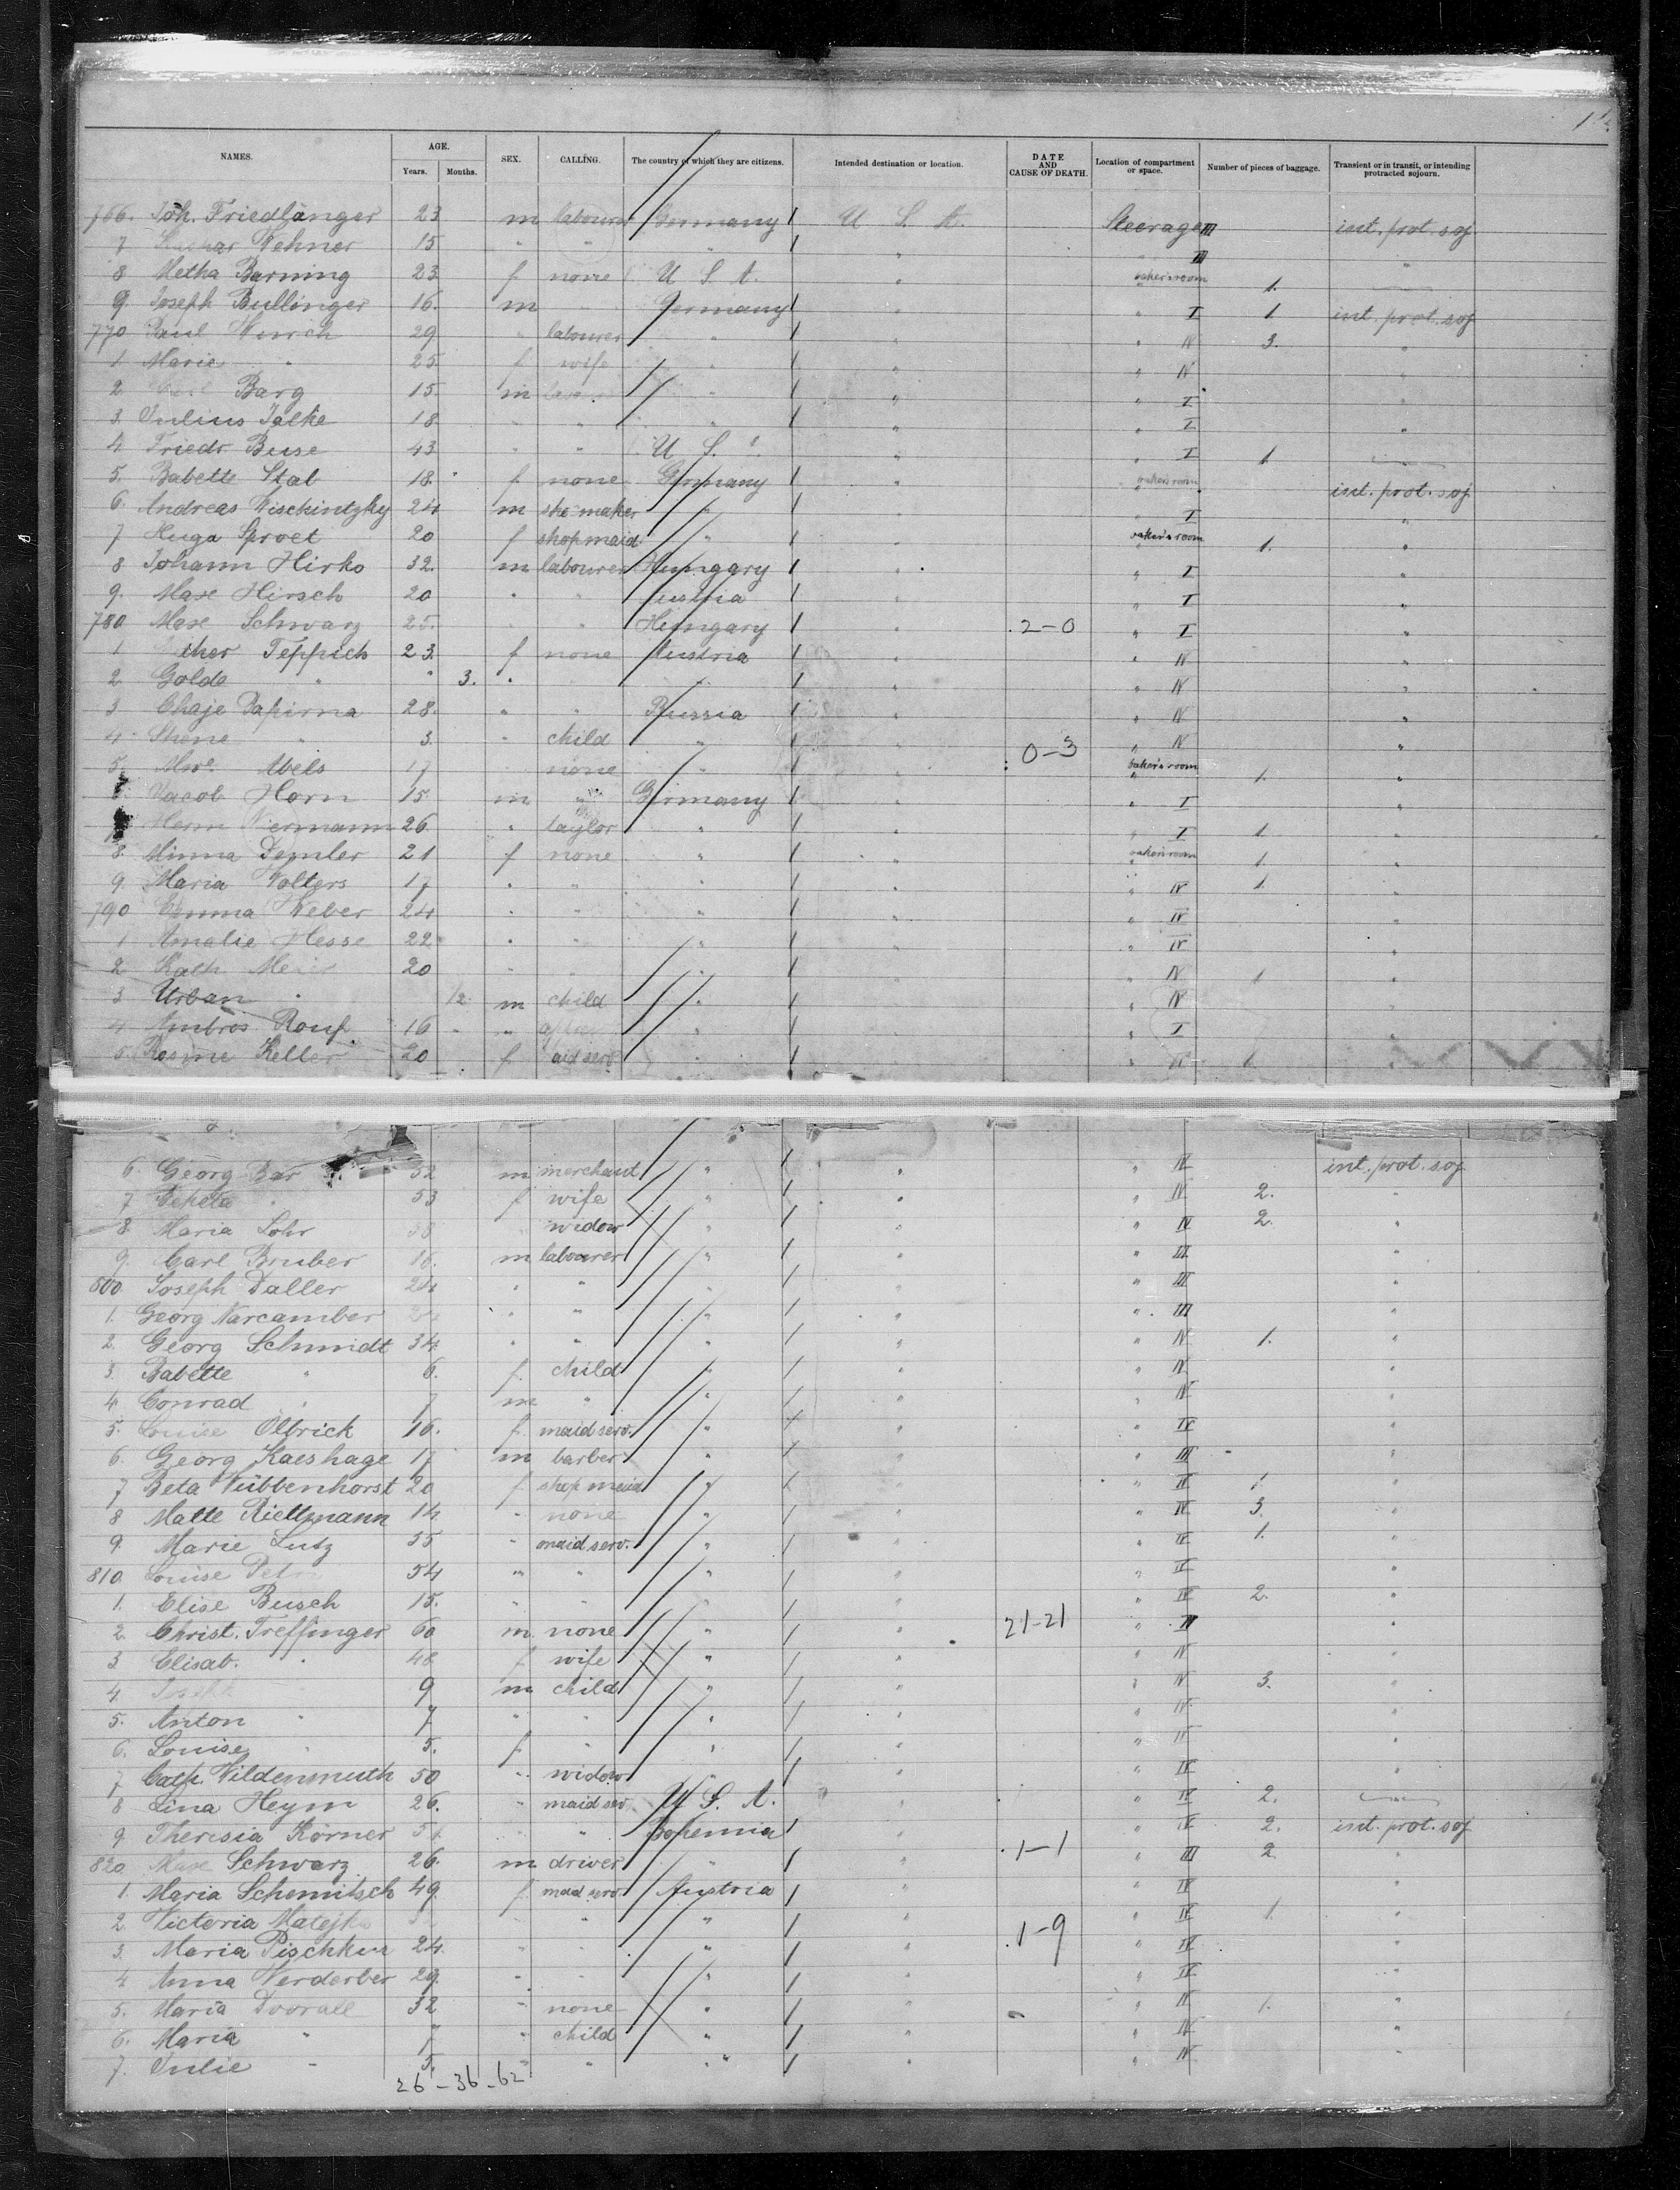 NAMES. AGE. Years. Months. SEX. CALLING. The country of which they are citizens. Intended destination or location. DATE AND CAUSE OF DEATH. Location of compartment or space. Number of pieces of baggage. Transient or in transit, or intending protracted sojourn.
766. Joh. Friedlänger 23 m labourer Germany U S A. Steerage III int. prot. soj
7 Wehner 15 " " " " " III "
8 Metha Barning 23 f none U S A. " baker's room 1.
9. Joseph Bullinger 16. m Germany " " I 1 int. prot. soj
770 Paul Wurch 29 " labourer " " " IV 3. "
1 Marie " 25. f wife " " " IV "
2 Barg 15. m " " " I "
3. Julius Jalke 18. " " " " " I "
4 Friedr Buse 43 " " U S. " " I 1
5. Babette Stal 18. f none Germany " baker's room int. prot. soj
6. Andreas Wischintzky 24 m shoemaker " " " I "
7 Huga Sproet 20 f shopmaid " " baker's room 1. "
8 Johann Hirko 32. m labourer Hungary " " I "
9. Max Hirsch 20 " " Austria " " I "
780 Max Schwarz 25. " " Hungary " 2-0 " I "
1 Teppich 23. f none Austria " " IV "
2 Golde " " 3. " " " " IV "
3 Chaje Papirna 28. " " Russia " " IV "
4. Shene " 3. " child " " 0-3 " IV "
5. Abels 17 none " " baker's room 1. "
6. Jacob Horn 15 m " Germany " " I "
Herm Wermann 26 " taylor " " " I 1. "
8. Minna Demler 21 f none " " baker's room 1. "
9. Maria Wolters 17 " " " " " IV 1. "
790 Emma Weber 24 " " " " " IV "
1 Amalie Hesse 22 " " " " " IV "
2 Kath 20 " " " " " IV 1 "
3 Urban " m child " " " IV "
4 Ambros Rouf 16 " " " " I "
5 Keller 20 f " " " IV 1. "
6. Georg Bar 52 m merchant " " " IV int. prot. soj
7 Pepeta " 53 f wife " " " IV 2. "
8. Maria Lohr 58 widow " " " IV 2. "
9. Carl Bruber 16. m labourer " " " III "
800. Joseph Daller 24 " " " " " III "
1. Georg Narcamber " " " " " III "
2. Georg Schmidt 34. " " " " " IV 1. "
3. Babette " 6. f. child " " " IV "
4. Conrad " 7 m " " " " IV "
5. Louise Olbrick 16. f. maid serv. " " " IV "
6. Georg Kaeshage 17 m barber " " " III "
7 Beta Wübbenhorst 20 f shop maid " " " IV 1. "
8 Matte Rieltzmann 14 " none " " " IV 3. "
9. Marie Lutz 35 " maid serv. " " " IV 1. "
810. Louise 54 " " " " " IV "
1. Elise Busch 15. " " " " " IV 2. "
2. Christ. Treffinger 60 m none " " 21-21 " III "
3 Elisab. " 48 f wife " " " IV "
4. Joseph 9 m child " " " IV 3. "
5. Anton " 7 " " " " " IV "
6. Louise " 5. f " " " IV "
7 Cath. Wildenmuth 50 " widow " " IV "
8 Lina Heym 26. " maid serv. U S. A. " IV 2.
9 Theresia Körner " " Bohemia " " IV 2. int. prot. soj
820. Max Schwarz 26. m driver " " 1-1 " III 2 "
1. Maria Schemitsch 49. f. maid serv. Austria " " IV "
2. Victoria Matejka " " " " IV 1. "
3. Maria Pischkur 24. " " " " 1-9 " IV "
4 Anna Verderber 29. " " " " " IV "
5. Maria Dvorale 32 " none " " " IV 1. "
6. Maria " 7 " child " " " IV "
7. Julie " 5. " " " " " IV "
26-36-62